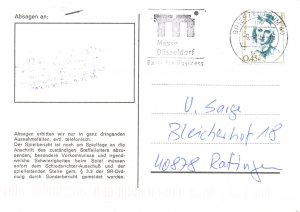 Absagen an:
Messe
Düsseldorf
Basis for Business
0,45
U. Sarge
Bleicherhof 18
40878 Ratingen
Absagen erbitten wir nur in ganz dringenden
Ausnahmefällen, evtl. telefonisch.
Der Spielbericht ist noch am Spieltage an die
Anschrift des zuständigen Staffelleiters abzu-
senden, besondere Vorkommnisse und irgend-
welche Schwierigkeiten beim Spiel müssen
sofort dem Schiedsrichter-Ausschuß und der
spielleitenden Stelle gem. § 3.3 der SR-Ord-
nung durch Sonderbericht gemeldet werden.